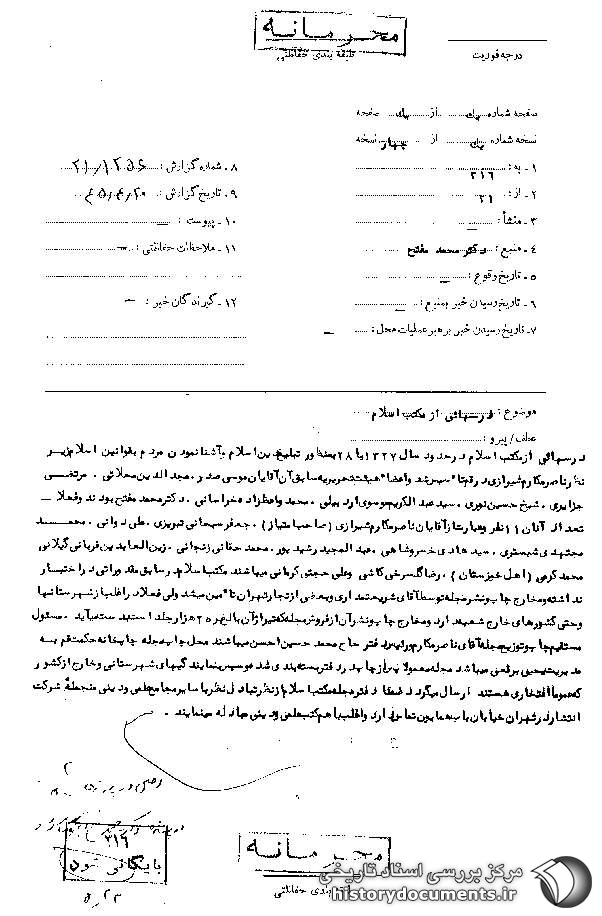 محرمانه
طبقه بندی حفاظتی
درجه فوریت
صفحه شماره یک از یک صفحه
نسخه شماره یک از چهار نسخه
۱ ـ به : ۳۱۶
۲ ـ از : ۲۱
۳ ـ منشأ : ـ
۴ ـ منبع : دکتر محمد مفتح
۵ ـ تاریخ وقوع : ـ
۶ ـ تاریخ رسیدن خبر بمنبع : ـ
۷ ـ تاریخ رسیدن خبر برهبر عملیات محل : ـ
۸ ـ شماره گزارش : ۲۱/۱۲۵۶
۹ ـ تاریخ گزارش : ۴۵/۴/۲۰
۱۰ ـ پیوست : ـ
۱۱ ـ ملاحظات حفاظتی : ـ
۱۲ ـ گیرندگان خبر : ـ
موضوع : درسهائی از مکتب اسلام
عطف / پیرو :
درسهائی از مکتب اسلام در حدود سال ۱۳۲۷ یا ۲۸ بمنظور تبلیغ دین اسلام و آشنا نمودن مردم بقوانین اسلام زیر
نظر ناصر مکارم شیرازی در قم تأسیس شد و اعضاء هیئت تحریریه سابق آن آقایان موسی صدر . مجدالدین محلاتی . مرتضی
جزایری . شیخ حسین نوری . سید عبدالکریم موسوی اردبیلی . محمد واعظ زاده خراسانی . دکتر محمد مفتح بودند و فعلا
تعداد آنان ۱۱ نفر و عبارتند از آقایان ناصر مکارم شیرازی ( صاحب امتیاز ) . جعفر سبحانی تبریزی . علی دوانی . محمد
مجتهدی شبستری . سید هادی خسروشاهی . عبدالمجید رشید پور . محمد حقانی زنجانی . زین العابدین قربانی گیلانی
محمد کرمی ( اهل خوزستان ) . رضا گلسرخی کاشی و علی حجتی کرمانی میباشند مکتب اسلام در سابق مقدوراتی در اختیار
نداشته و مخارج چاپ و نشر مجله توسط آقای شریعتمداری و بعضی از تجار تهران تأمین میشد ولی فعلا در اغلب از شهرستانها
و حتی کشورهای خارج شعبه دارد و مخارج چاپ و نشر آن از فروش مجله که تیراژ آن بالغ بر هزار جلد است بدست میآید . مسئول
مستقیم چاپ و توزیع مجله آقای ناصر مکارم و رئیس دفتر حاج محمد حسین احسن میباشند محل چاپ مجله چاپخانه حکمت قم به
مدیریت یحیی برقعی میباشد مجله معمولا پس از چاپ در دفتر بسته بندی شده و سپس بنمایندگیهای شهرستانی و خارج از کشور
که عموما افتخاری هستند ارسال میگردد ضمنا دفتر مجله مکتب اسلام از نظر تبادل نظر با سایر مجامع علمی و دینی منجمله شرکت
انتشار در تهران خیابان باب همایون تماس دارد و اغلب با هم کتب علمی و دینی مبادله مینمایند .
۳۱۶
بایگانی شود
محرمانه
طبقه بندی حفاظتی
مرکز بررسی اسناد تاریخی
historydocuments.ir